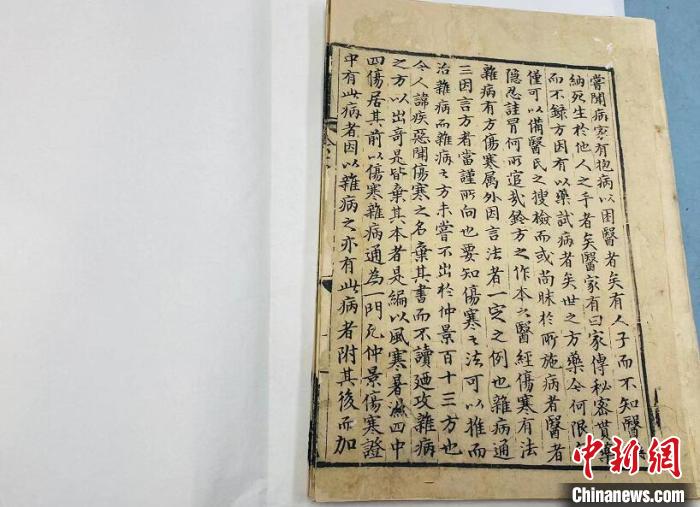 嘗聞病家有抱病以困醫者矣有人子而不知醫
納死生於他人之手者矣醫家有曰家傳秘密貰藥
而不録方因有以藥試病者矣世之方藥今何限
僅可以備醫氏之搜檢而或尚昧於所施病者醫者
隱忍詿冐何所追哉銓方之作本六醫經傷寒有法
雜病有方傷寒属外因言法者一定之例也雜病通
三因言方者當謹所向也要知傷寒之法可以推而
治雜病而雜病之方未嘗不出於仲景百十三方也
今人諱疾惡聞傷寒之名棄其書而不讀廼攻雜病
之方以出奇是皆棄其本者是編以風寒暑濕四中
四傷居其前以傷寒雜病通為一門凡仲景傷寒證
中有此病者因以雜病之亦有此病者附其後而加
中新网
Chinanews.com